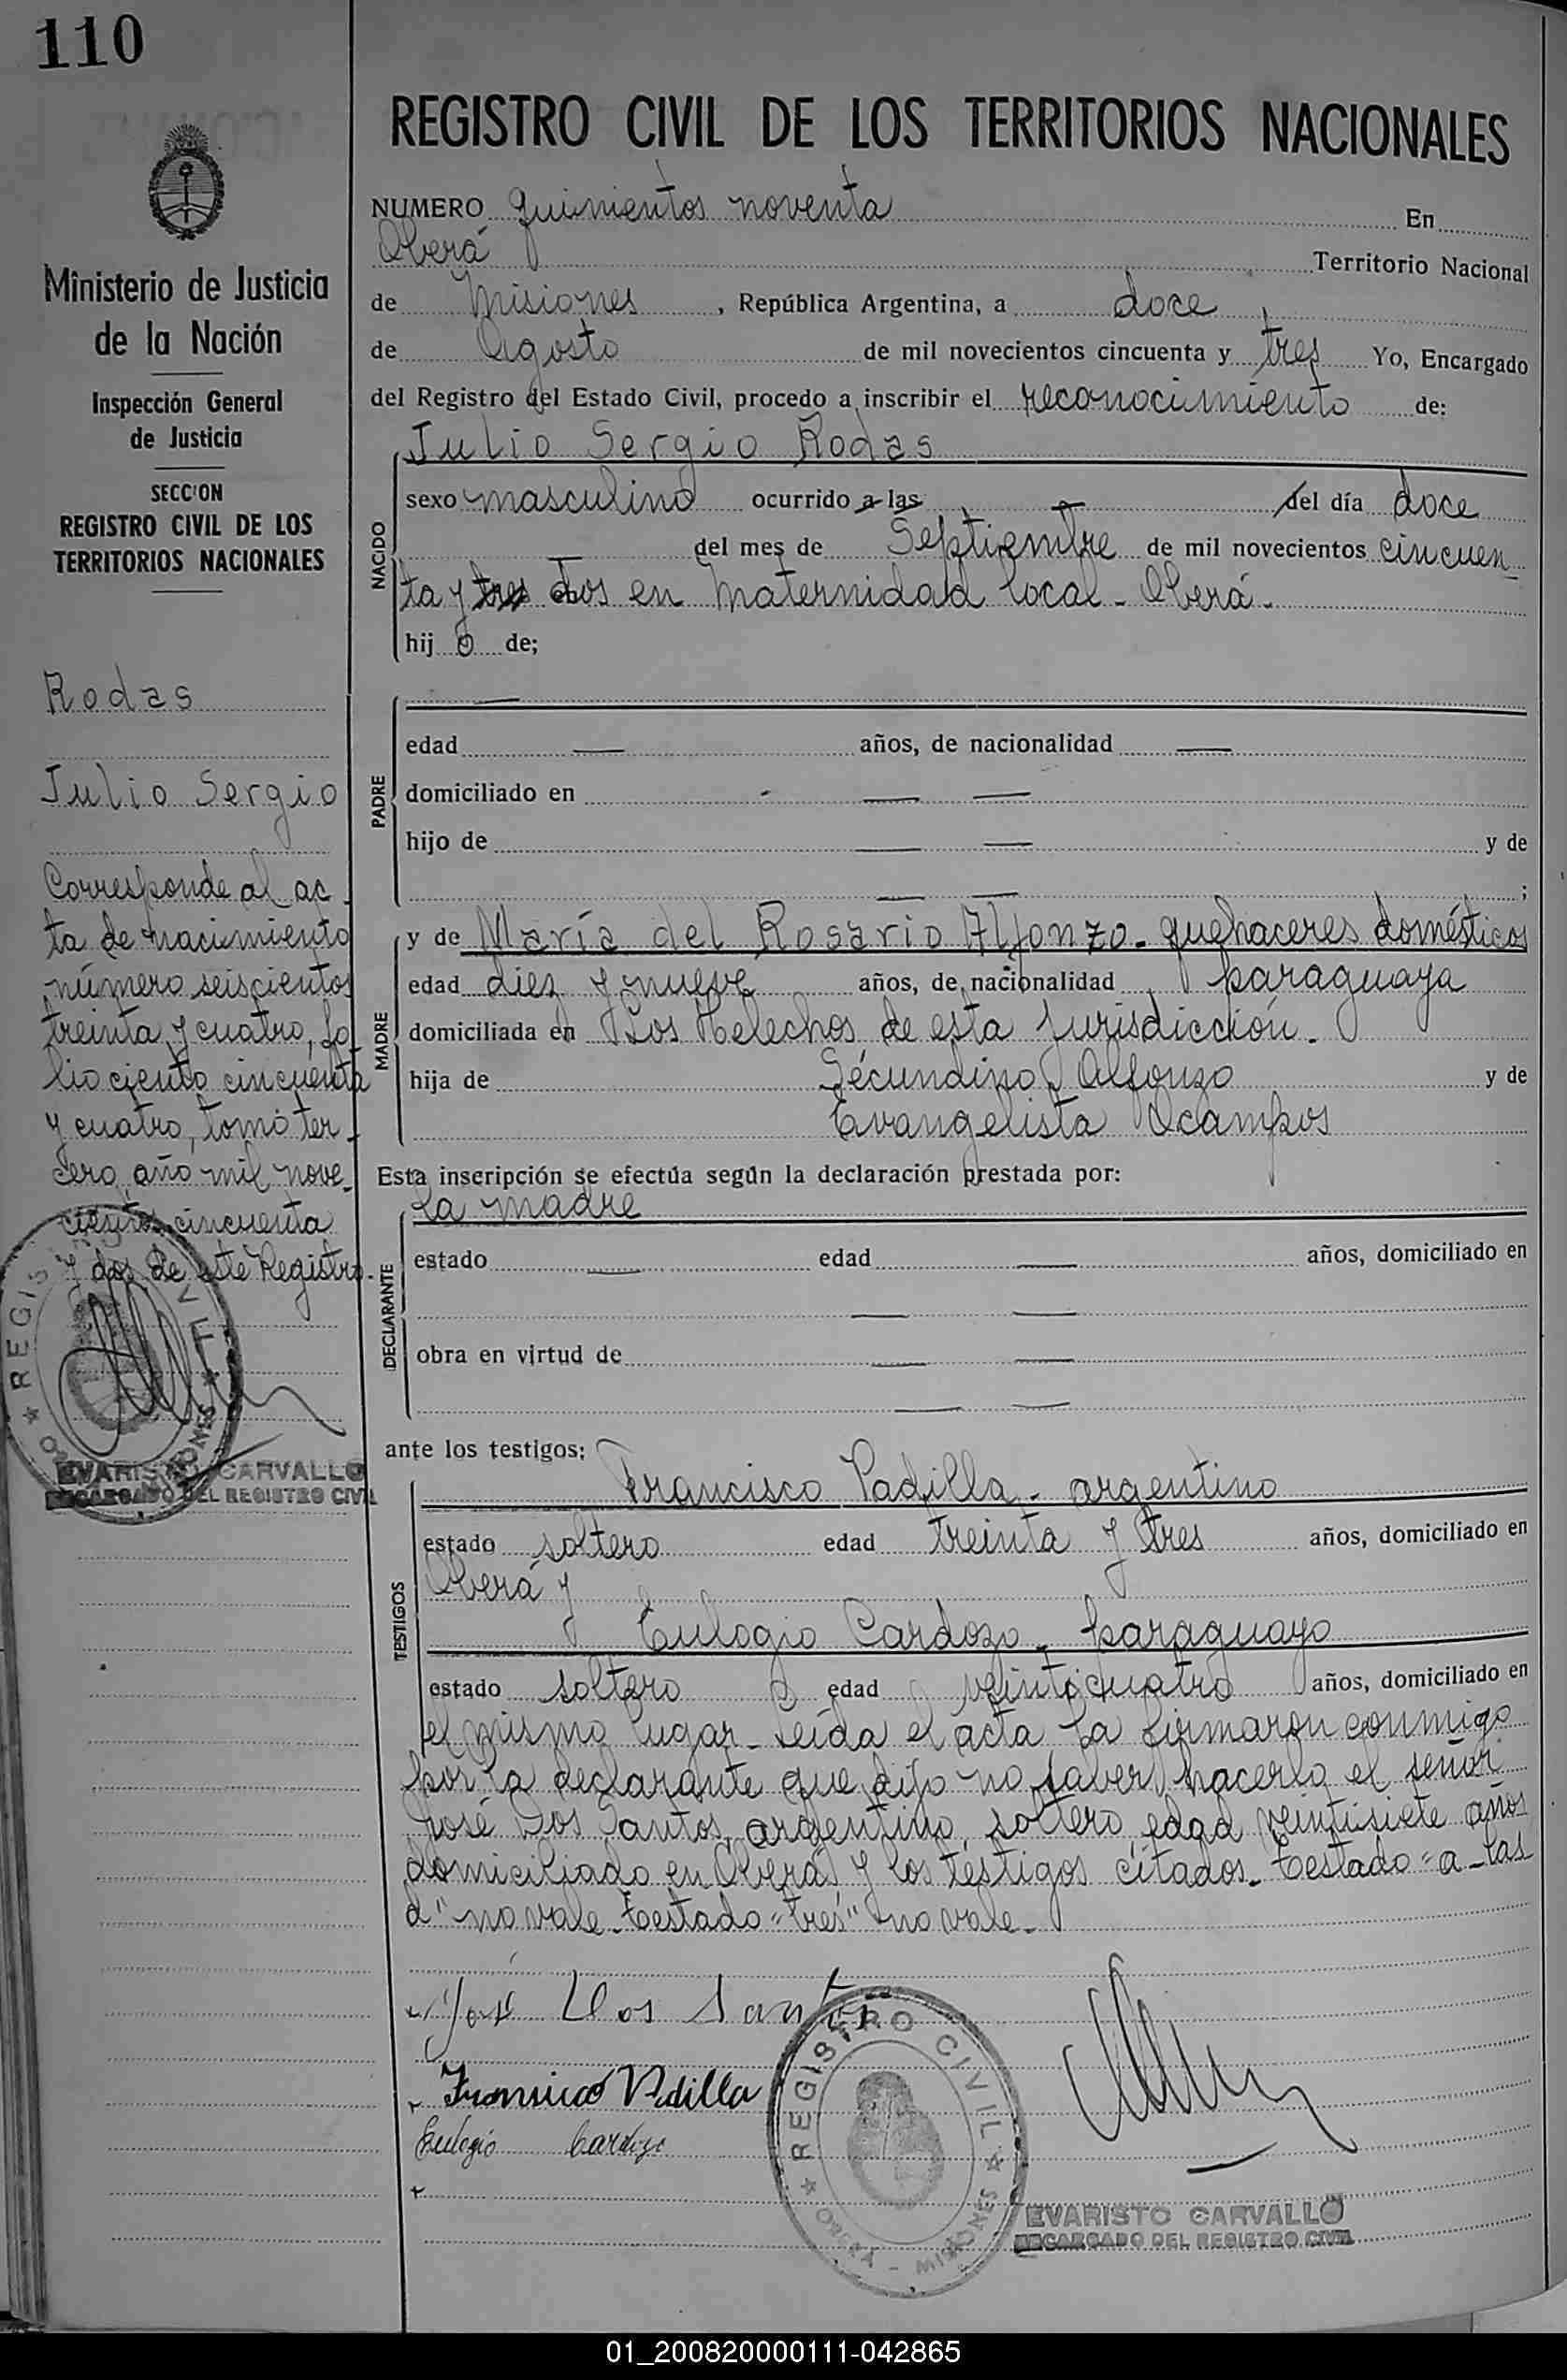 110
REGISTRO CIVIL DE LOS TERRITORIOS NACIONALES
Ministerio de Justicia
de la Nación
Inspección General
de Justicia
SECCION
REGISTRO CIVIL DE LOS
TERRITORIOS NACIONALES
Rodas
Julio Sergio
Corresponde al ac-
ta de nacimiento
número seiscientos
treinta y cuatro, fo
lio ciento cincuenta
y cuatro, tomo ter-
cero, año mil nove-
cientos cincuenta
y dos de este Registro.
REGISTRO CIVIL
EVARISTO CARVALLO
ENCARGADO DEL REGISTRO CIVIL
NUMERO quinientos noventa En
Oberá Territorio Nacional
de Misiones, República Argentina, a doce
de Agosto de mil novecientos cincuenta y tres Yo, Encargado
del Registro del Estado Civil, procedo a inscribir el reconocimiento de:
NACIDO
Julio Sergio Rodas
sexo masculino ocurrido a las — del día doce
— del mes de Septiembre de mil novecientos cincuen-
ta y tres dos en Maternidad local - Oberá -
hij o de;
PADRE
—
edad — años, de nacionalidad —
domiciliado en — —
hijo de — — y de
— — ;
MADRE
y de María del Rosario Alfonzo - quehaceres domésticos
edad diez y nueve años, de nacionalidad paraguaya
domiciliada en Los Helechos, de esta jurisdicción.
hija de Secundino Alfonzo y de
Evangelista Ocampos
Esta inscripción se efectúa según la declaración prestada por:
DECLARANTE
la madre
estado — edad — años, domiciliado en
— —
obra en virtud de — —
— —
ante los testigos:
TESTIGOS
Francisco Padilla - argentino
estado soltero edad treinta y tres años, domiciliado en
Oberá y
Eulogio Cardozo - paraguayo
estado soltero edad veinticuatro años, domiciliado en
el mismo lugar - Leída el acta la firmaron conmigo
por la declarante que dijo no saber hacerlo el señor
José Dos Santos, argentino, soltero, edad veintisiete años
domiciliado en Oberá y los testigos citados - Testado "a-las
d" no vale - Testado "tres" no vale -
José Dos Santos
Francisco Padilla
Eulogio Cardozo
REGISTRO CIVIL
OBERÁ - MISIONES
EVARISTO CARVALLO
ENCARGADO DEL REGISTRO CIVIL
01_200820000111-042865